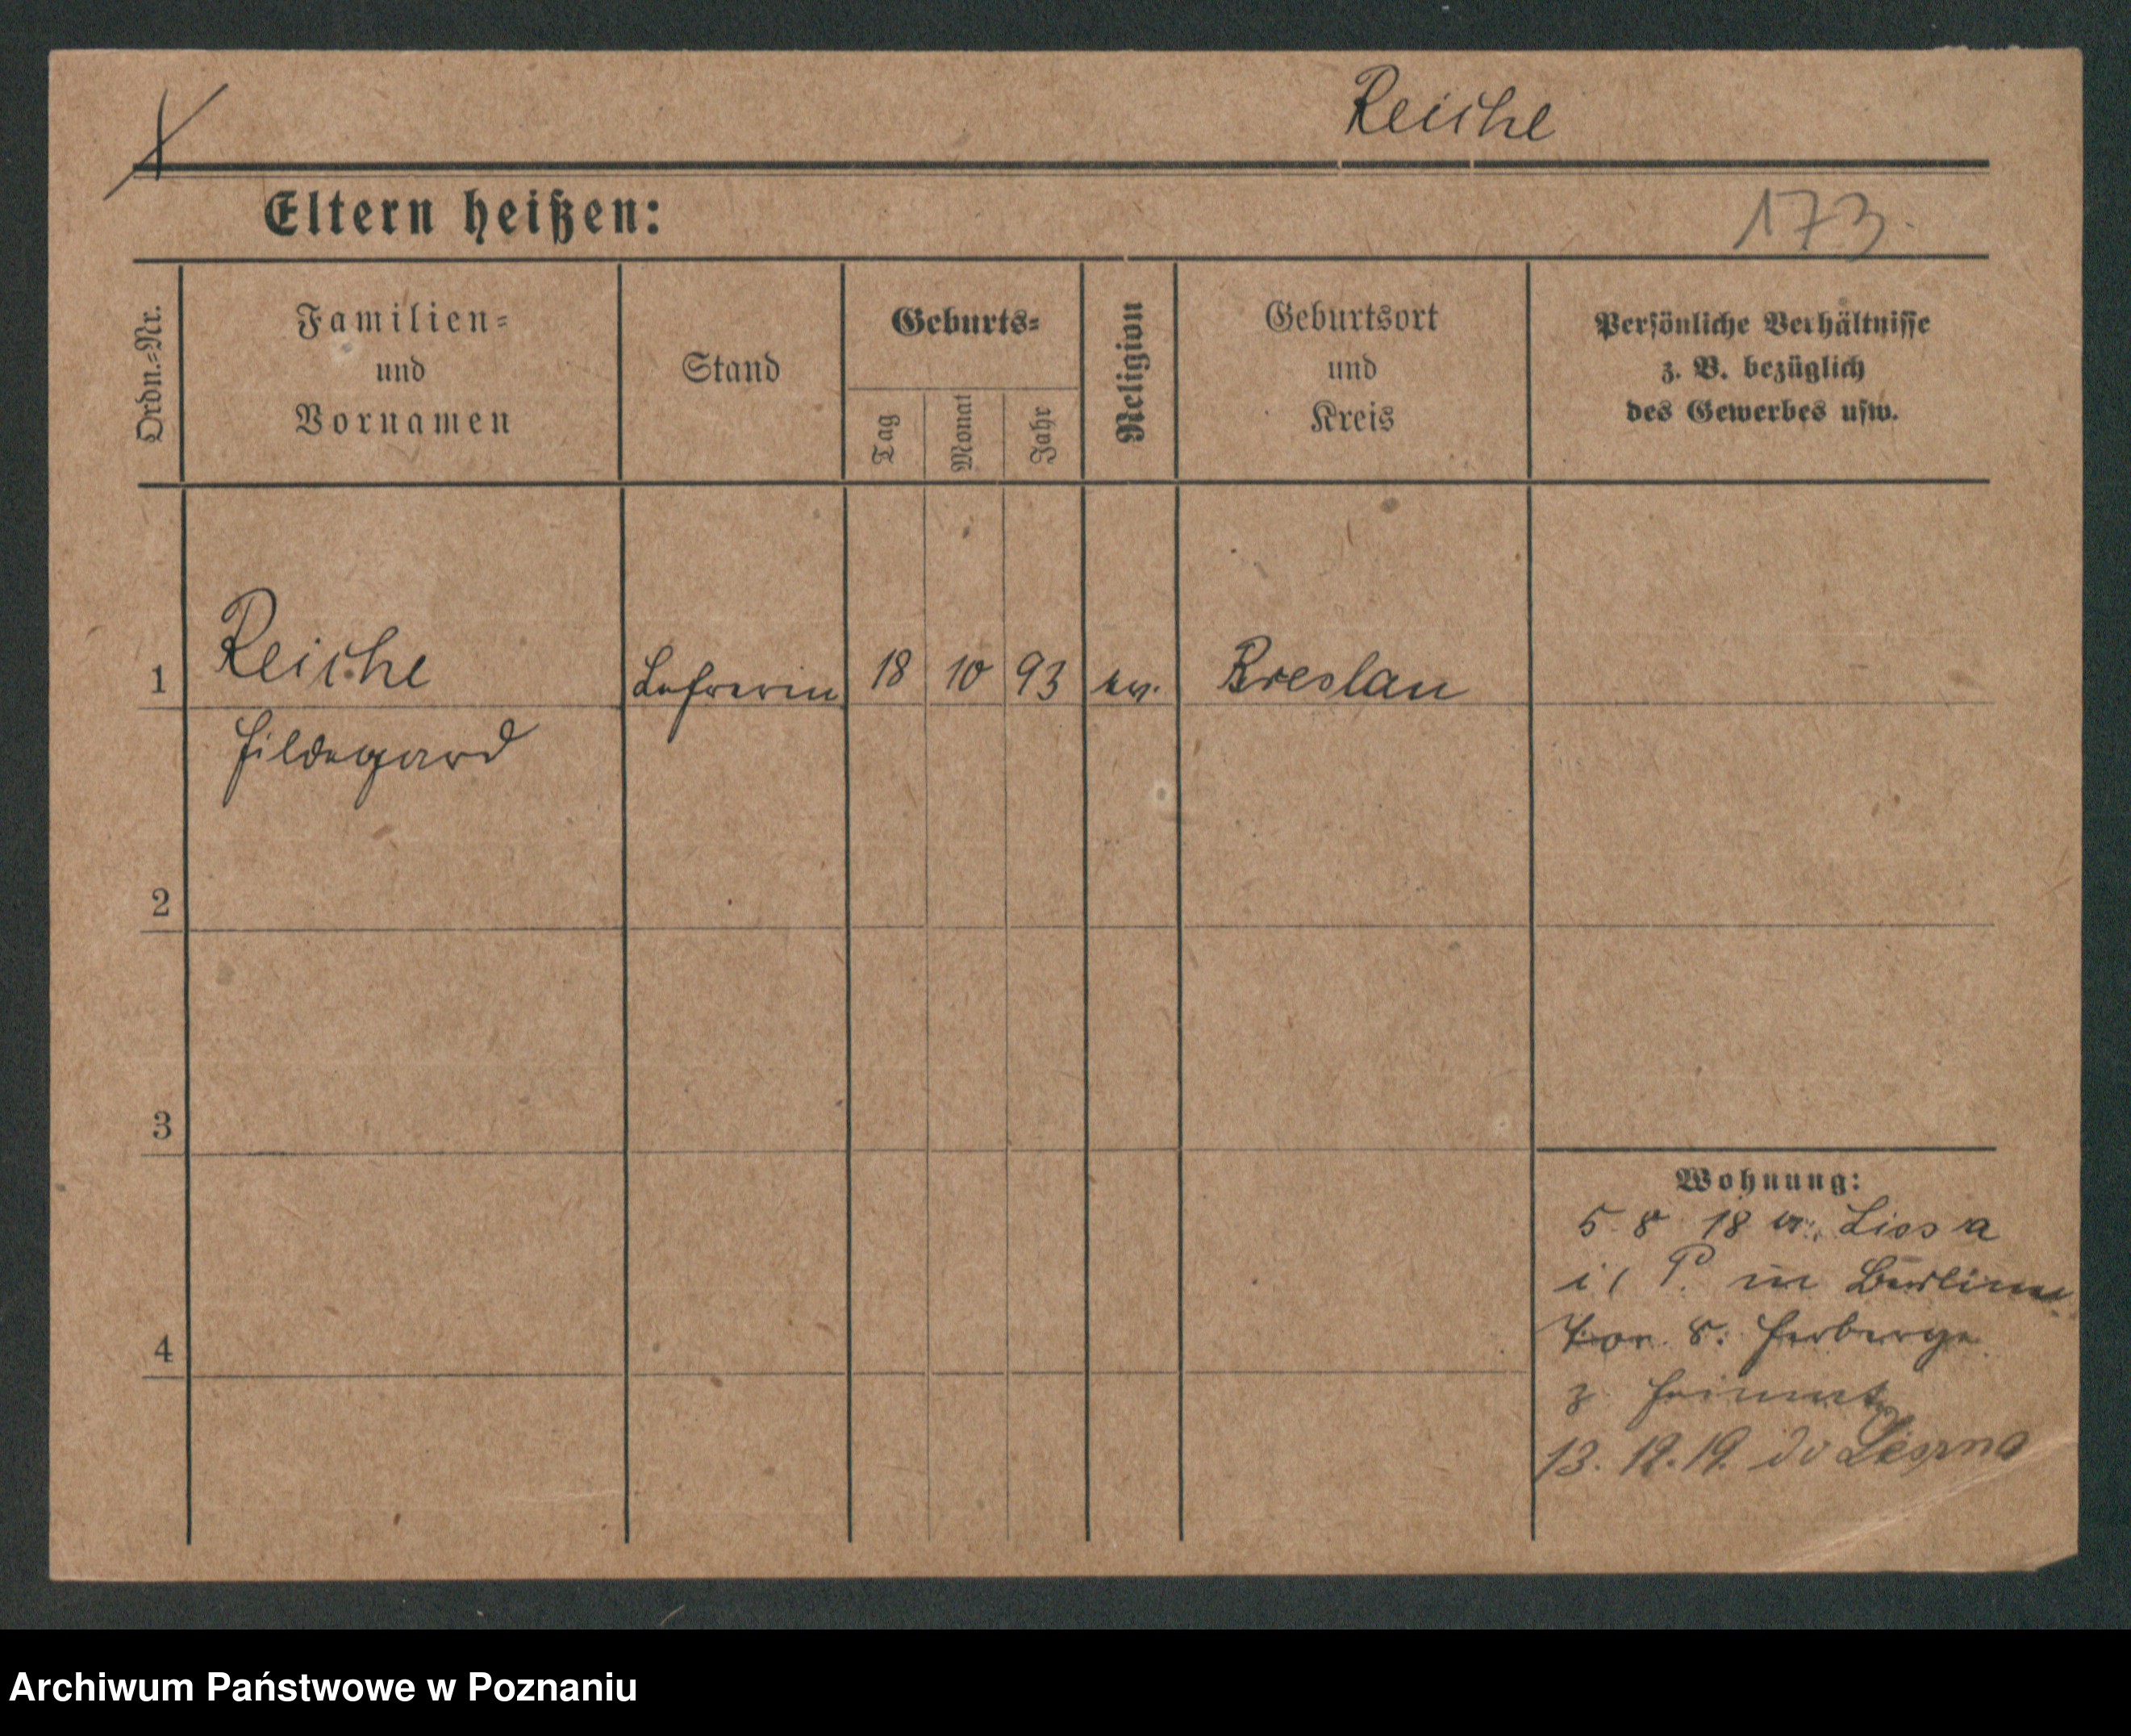 Reiche
Eltern heißen:
173.
Ordn.=Nr.
Familien=
und
Vornamen
Stand
Geburts=
Tag
Monat
Jahr
Religion
Geburtsort
und
Kreis
Persönliche Verhältnisse
z. B. bezüglich
des Gewerbes usw.
1
Reiche
Lehrerin
18
10
93
ev.
Breslau
Hildegard
2
3
4
Wohnung:
5. 8. 18 v. Lissa
i/ P. in Berliner
Tor 8. Herberge
z. Heimat
13. 12. 19. do Leszna
Archiwum Państwowe w Poznaniu